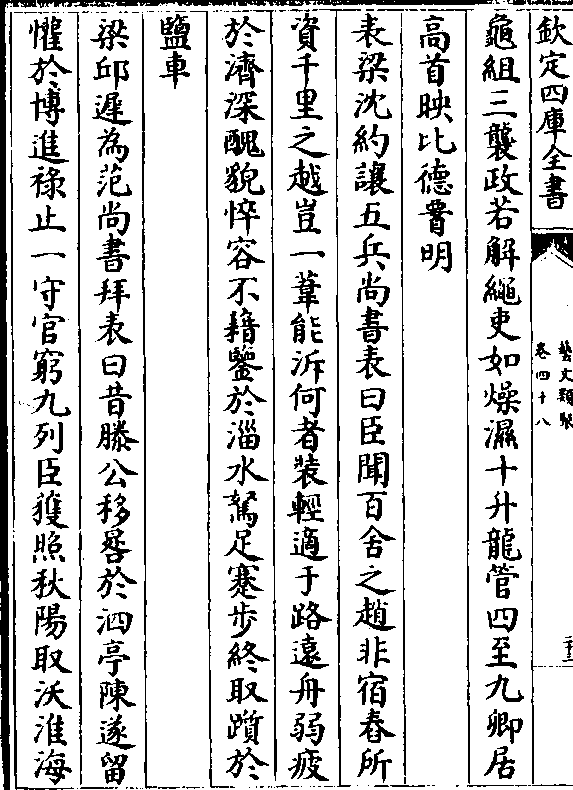 欽定四庫全書
藝文類聚
卷四十八
龜組三襲政若解繩吏如燥濕十升龍管四至九卿居
高首映比德賈明
表梁沈約讓五兵尚書表曰臣聞百舍之趙非宿舂所
資千里之越豈一葦能泝何者裝輕適于路遠舟弱疲
於濟深醜貌悴容不藉鑒於淄水駑足蹇步終取躓於
鹽車
梁邱遲為范尚書拜表曰昔滕公移晷於泗亭陳遂留
懽於博進祿止一守官窮九列臣獲照秋陽取沃淮海